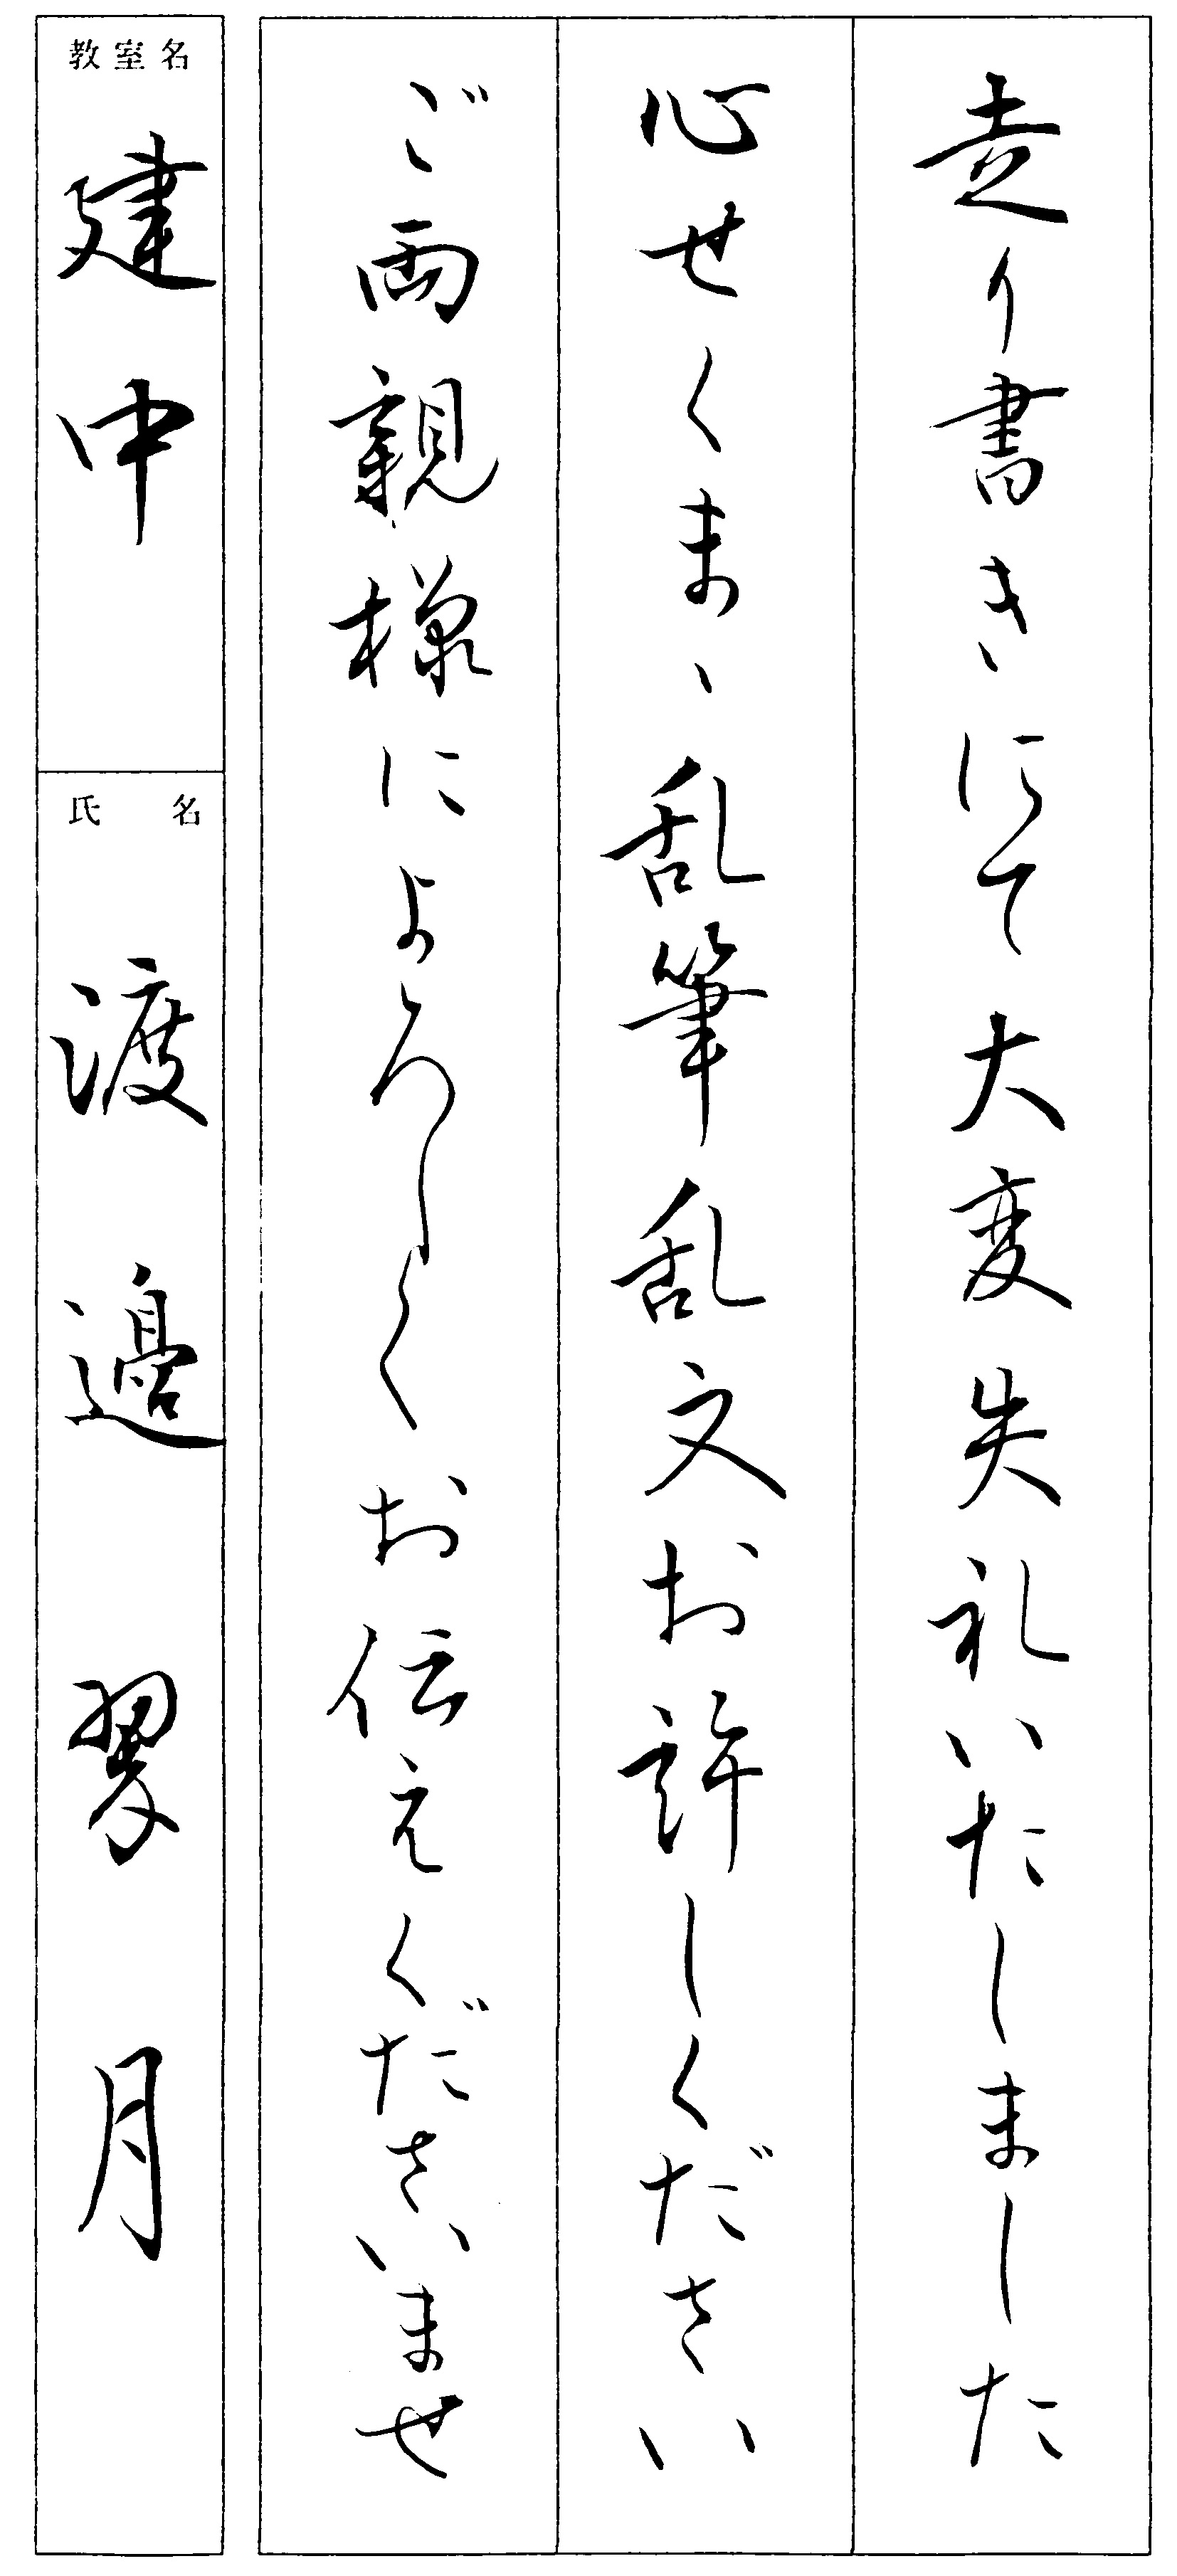 走り書きにて大変失礼いたしました
心せくまゝ乱筆乱文お許しください
ご両親様によろしくお伝えくださいませ
教室名
建中
氏名
渡邉翠月